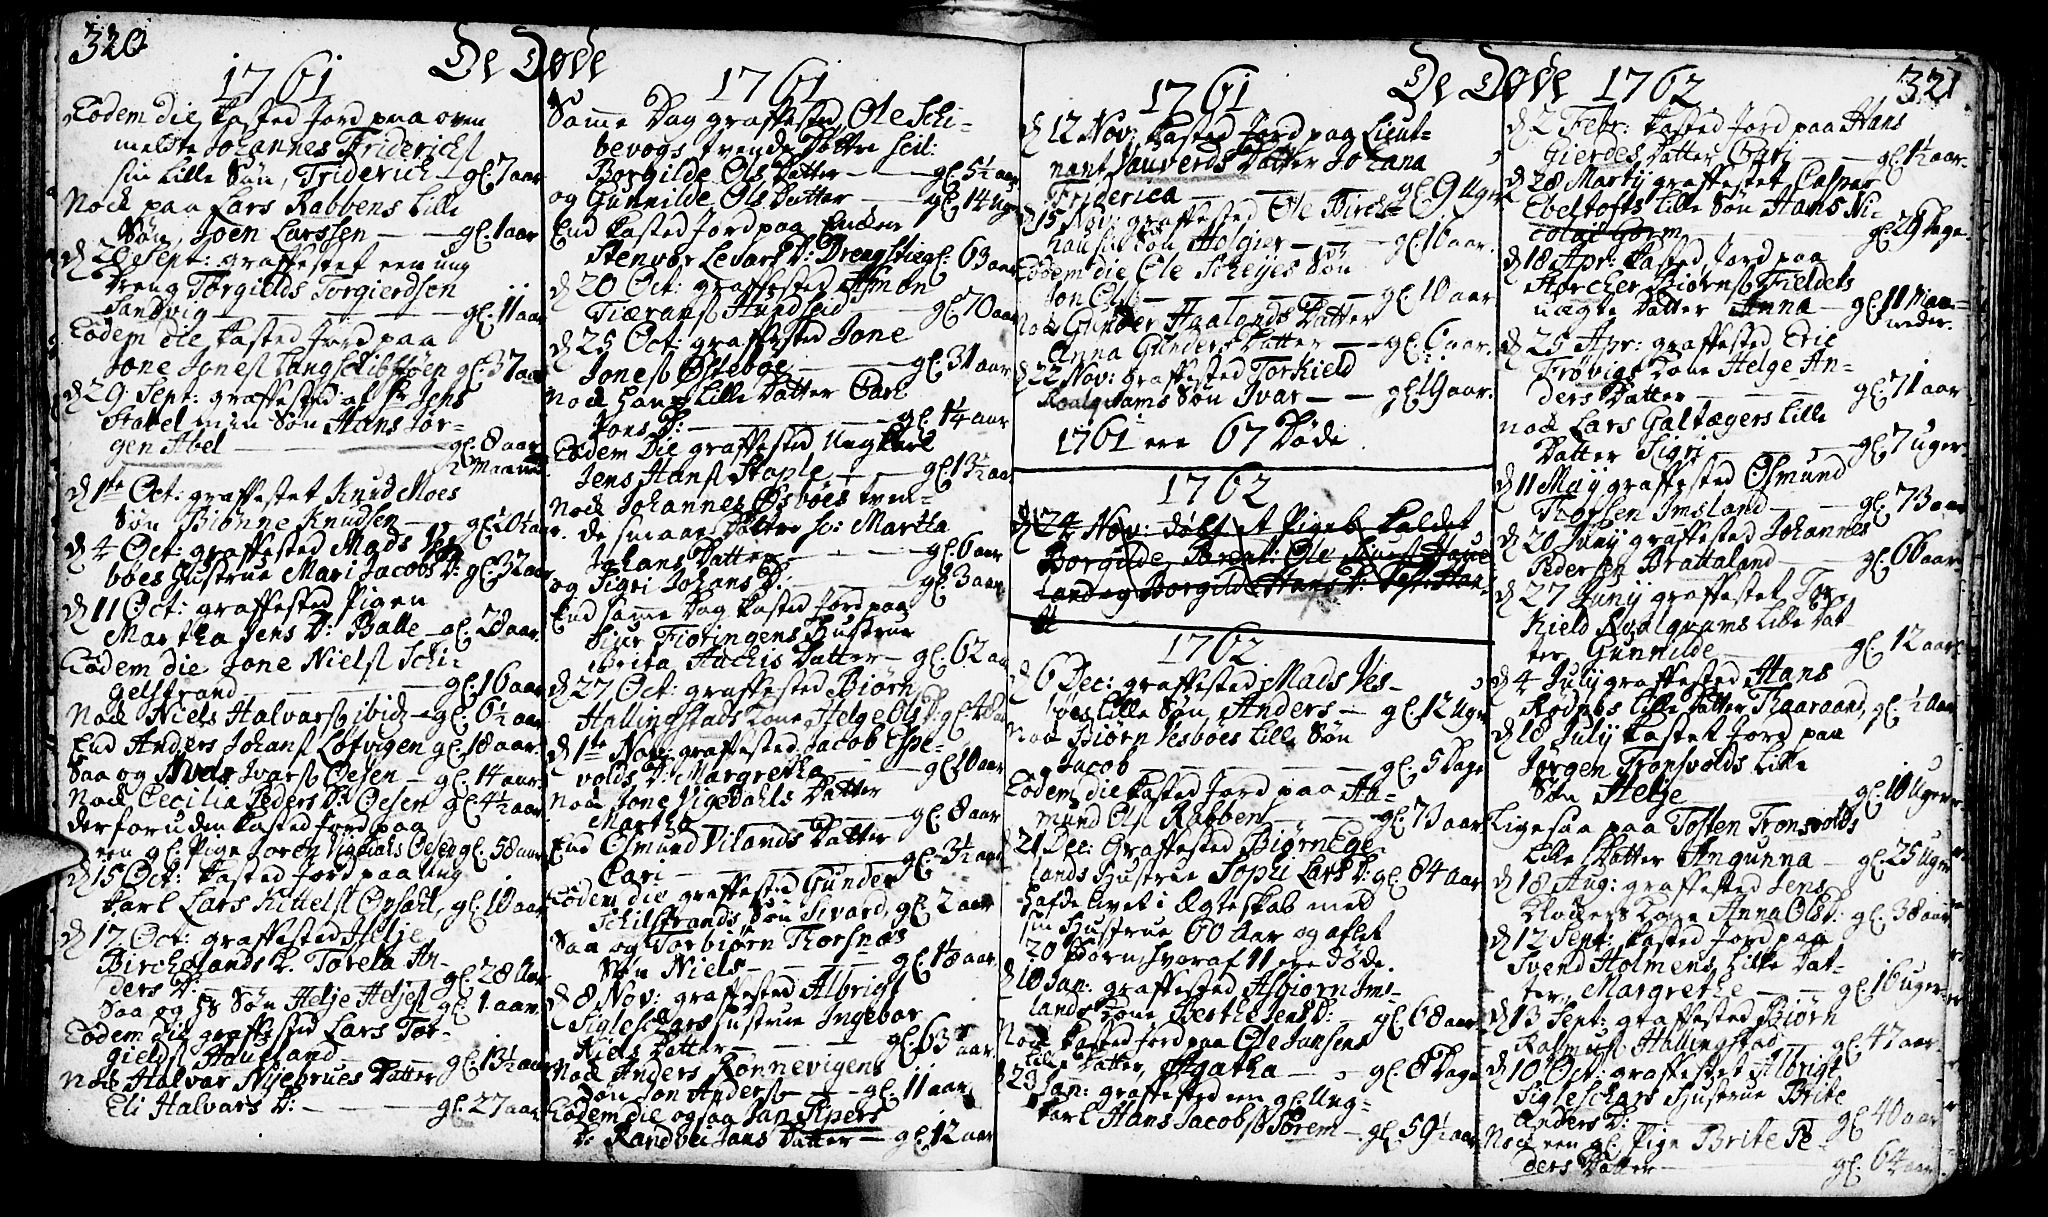 320
De Døde
1761
Eodem die kasted Jord paa oven
melte Johannes Friderichs
sin lille Søn, Friderich - gl. 7 aar
Nock paa Lars Rabbens lille
Søn, Joen Larssen - - gl. 1 aar
Sept: graffestet een ung
Dreng Torgilds Torgierdsen
Sandvig - - - gl. 11 aar
Eodem die kasted Jord paa
Jone Jons gl. 37 aar
d 29 Sept: graffested af Hr Jens
Stabel min Søn Hans Jør-
gen Abel - - - gl. 8 aar
2 Maan
d 1te Oct: graffestet Knud Moes
Søn Biønne Knudsen - gl. 10 aar.
d 4 Oct: graffested Mads Ves
böes Hustrue Mari Jacobs D: gl. 32 aar
d 11 Oct: graffested Pigen
Martha Jens D: Balle gl. 28 aar.
Eodem die Jone Niels Schi-
gelstrand - - gl. 16 aar
Nock Niels Halvars ibid: - gl. 6½ aar
End Anders Johans Lofvigen gl. 18 aar.
Saa og Niels Ivars Oesen - gl. 14 aar
Nock Cecilia Peders D: Oesen gl. 4½ aar
derforuden kasted Jord paa
een gl. Pige Joren Oesen gl. 58 aar
d 15 Oct: kasted Jord paa ung
karl Lars Opsal, gl. 10 aar
d 17 Oct: graffested Helje
Birchelands K. Torela An-
ders D: - - - gl. 28 aar
Saa og Søn Helje Heljes gl. 1 aar.
Eodem die graffested Lars Tor-
gields Haufland - - gl. 13½ aar
Nock Halvar Nijebrues Datter
Eli Halvars D: - - - gl. 27 aar
1761
Samme Dag graffested Ole Schi-
bevogs tvende Døttre scil:
Borgilde Ols Datter - - gl. 5½ aar
og Gunnilde Ols Datter - - gl. 14 uger
End kasted Jord paa Enken
Stenvor Levars D: Drengstig gl. 63 aar
d 20 Oct: graffested Asmon
Tiærans Hundseid - - gl. 70 aar
d 25 Oct: graffested Jone
Jones Østeboe - - - gl. 31 aar
Nock hans lille Datter Cari
Jons D: - - - gl. 1¼ aar
Eodem Die graffested Ungkarl
Jens Hans Staple - - gl. 13½ aar
Nock Johannes Osböes tven-
de smaae Døttre so: Martha
Johans Datter - - - gl. 6 aar
og Sigri Johans D: - - - gl. 3 aar
End samme Dag kasted Jord paa
Siur Fioringens Hustrue
Brita Aachis Datter - gl. 62 aar
d 27 Oct: graffested Biørn
Hallingstads Kone Helge Ols D: gl. 48 aar
d 1te Nov: graffested Jacob Espe-
volds D: Margretha - - gl. 10 aar
Nock Jone Vigedahls Datter
Martha - - - gl. 8 aar
End Osmund Vilands Datter
Cari - - - gl. 3½ aar
Eodem die graffested Gunder
Schilstrands Søn Sivard, gl. 2 aar
Saa og Torbiørn Thorsnæs
Søn Niels - - - gl. 18 aar.
d 8 Nov: graffested Albrigt
Hustrue Ingebor
Niels Datter - - - gl. 63 aar.
Nock Anders Rønnevigens
Søn Jon Anders - - gl. 11 aar
Eodem die ogsaa Jan Pipers
D: Randvei Jans Datter - gl. 12 aar
De Døde
321
1761
d 12 Nov. kasted Jord paa Lieut-
nant Datter Johana
Friderica - - - gl. 9 Uger
d 15 Nov: graffested Ole Birche-
Søn Holgier - - - gl. 10 aar.
Eodem die Ole Scheijes Søn
Jon Ols - - - gl. 10 aar
Nock Gunder Haalands Datter
Anna Gunders Datter - - gl. 6 aar.
d 22 Nov: graffested Torkield
Kvalqvams Søn Ivar - - gl. 19 aar.
1761 ere 67 Døde.
1762
d 24 Nov. døbt et Pigeb. kaldet
Borgilde, Parent: Ole
land og Borgilde Hans D:
1762
d 6 Dec: graffested Mads Ves-
böes lille Søn, Anders - gl. 12 Uger
Nock Biørn Vesböes lille Søn
Jacob - - - gl. 5 Dage
Eodem die kasted Jord paa Aa-
mund Ols Rabben - - gl. 73 aar
21 Dec: Graffested Biørn Ege-
lands Hustrue Sophi Lars D: gl. 84 aar
hafde levet i Ægteskab med
sin Hustrue 60 Aar og aflet
20 Børn hvoraf 11 ere døde.
d 10 Jan: graffested Asbiørn Ims-
lands Kone Berthe Jens D: - gl. 68 aar
Nock kasted Jord paa Ole Jansens
lille Datter, Agatha - - gl. 8 Dage
d 23 Jan: graffested een gl. Ung-
karl Hans Jacobs Sørem - gl. 59½ aar
1762
d 2 Febr: kasted Jord paa Hans
Gierdes Datter Guri - - gl. 1½ aar.
d 28 Martij graffestet Casper
Ebeltofts lille Søn Hans Ni-
colai Gorm - - gl. 29 Dage.
d 18 Apr: kasted Jord paa
Storcher Biørns Fieldets
uægte Datter Anna - gl. 11 Maa-
neder.
d 25 Apr: graffested Eric
Frøvigs Kone Helge An-
ders Datter - - - gl. 71 aar
Nock Lars Galtægers lille
Datter Sigri - - gl. 7 uger.
d 11 Maij graffested Osmund
Thorsen Imsland - - gl. 73 aar
d 20 Junij graffested Johannes
Pedersen Brattaland - gl. 66 aar
d 27 Junij graffestet Tor-
kield Kvalqvams lille Dat-
ter Gunnilde - - - gl. 12 aar
d 4 Julij graffested Hans
Rødnes lille Datter Thaaraand, gl. ½ Aar
d 18 Julij kastet Jord paa
Jørgen Tronsvolds lille
Søn Helje - - - gl. 10 Uger
Ligesaa paa Tosten Tronsvolds
lille Datter Angunna - gl. 25 Uger
d 18 Aug: graffested Jens
Kloders Kone Anna Ols D: gl. 38 aar
d 12 Sept: kasted Jord paa
Svend Holmens lille Dat-
ter, Margrethe - - gl. 16 uger
d 13 Sept: graffested Biørn
Rasmus Hallingstad - - gl. 47 aar.
d 10 Oct: graffestet Albrigt
Hustrue Brite
Anders D: - - - gl. 40 aar
Nock een gl. Pige Brite Pe-
ders Datter - - - gl. 64 aar